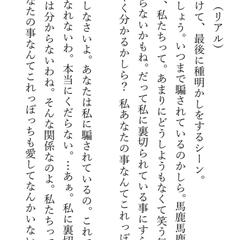 （リアル）
けて、最後に種明かしをするシーン。
しょう。いつまで騙されているのかしら。馬鹿馬鹿
、私たちって。あまりにどうしようもなくて笑
らないかもね。だって私に裏切られている事にすら
く分かるかしら？私あなたの事なんてこれっぽ
しなさいよ。あなたは私に騙されているの。これ
なれないわ。本当にくだらない。…あぁ。私に裏切
は分からないわね。そんな関係なのよ。私たちっ
なたの事なんてこれっぽっちも愛してなんかいな